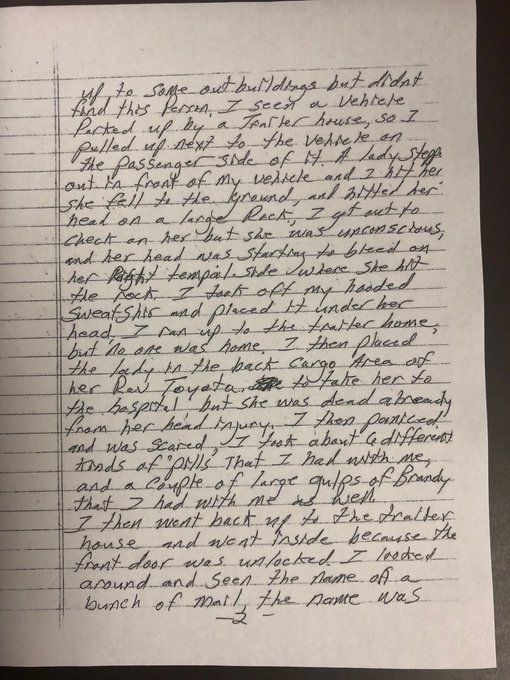 up to some out buildings but didnt
find this Person. I seen a vehicle
Parked up by a Trailer house, so I
pulled up next to the vehicle on
the passenger side of it. A lady Stepp
out in front of my vehicle and I hit her
She fell to the ground, and hitted her
head on a large Rock, I got out to
check on her but she was unconscious,
and her head was starting to bleed on
her Right tempal side where she hit
the rock. I took off my hooded
Sweatshir and placed it under her
head. I ran up to the trailer home,
but no one was home. I then placed
the lady in the back Cargo Area of
her Rav Toyota to take her to
the hospital, but she was dead already
from her head injury. I then paniced
and was scared, I took about 6 different
Kinds of pills That I had with me,
and a couple of large gulps of Brandy
that I had with me as well.
I then went back up to the trailer
house and went inside because the
front door was unlocked. I looked
around and seen the name off a
bunch of mail, the name was
-2-